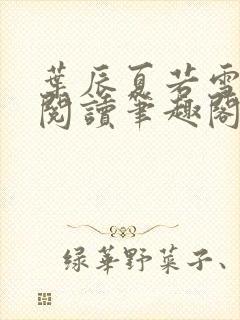 葉辰夏若雪
閱讀筆趣閣
綠華野菜子、